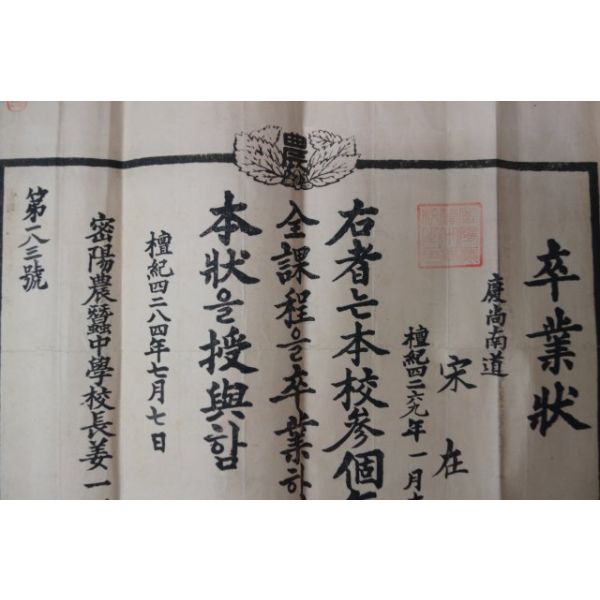 農
卒業狀
慶尚南道
宋在
檀紀四二六九年一月
右者는本校參個
全課程을卒業하
本狀을授與함
檀紀四二八四年七月七日
密陽農蠶中學校長姜一
第一八三號